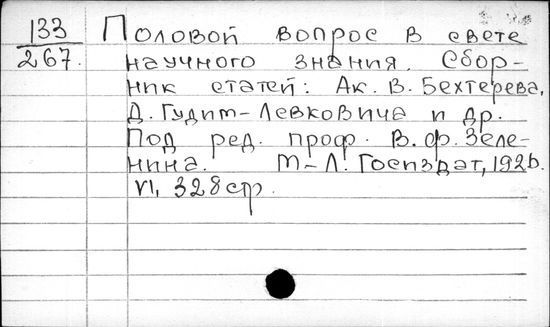 133
267.
Половой вопрос в свете
научного знания. Сбор-
ник статей: Ак. В. Бехтерева,
Д. Гудим-Левковича и др.
Под ред. проф. В.Ф. Зеле-
нина. М-Л. Госиздат, 1926.
VI, 328 стр.